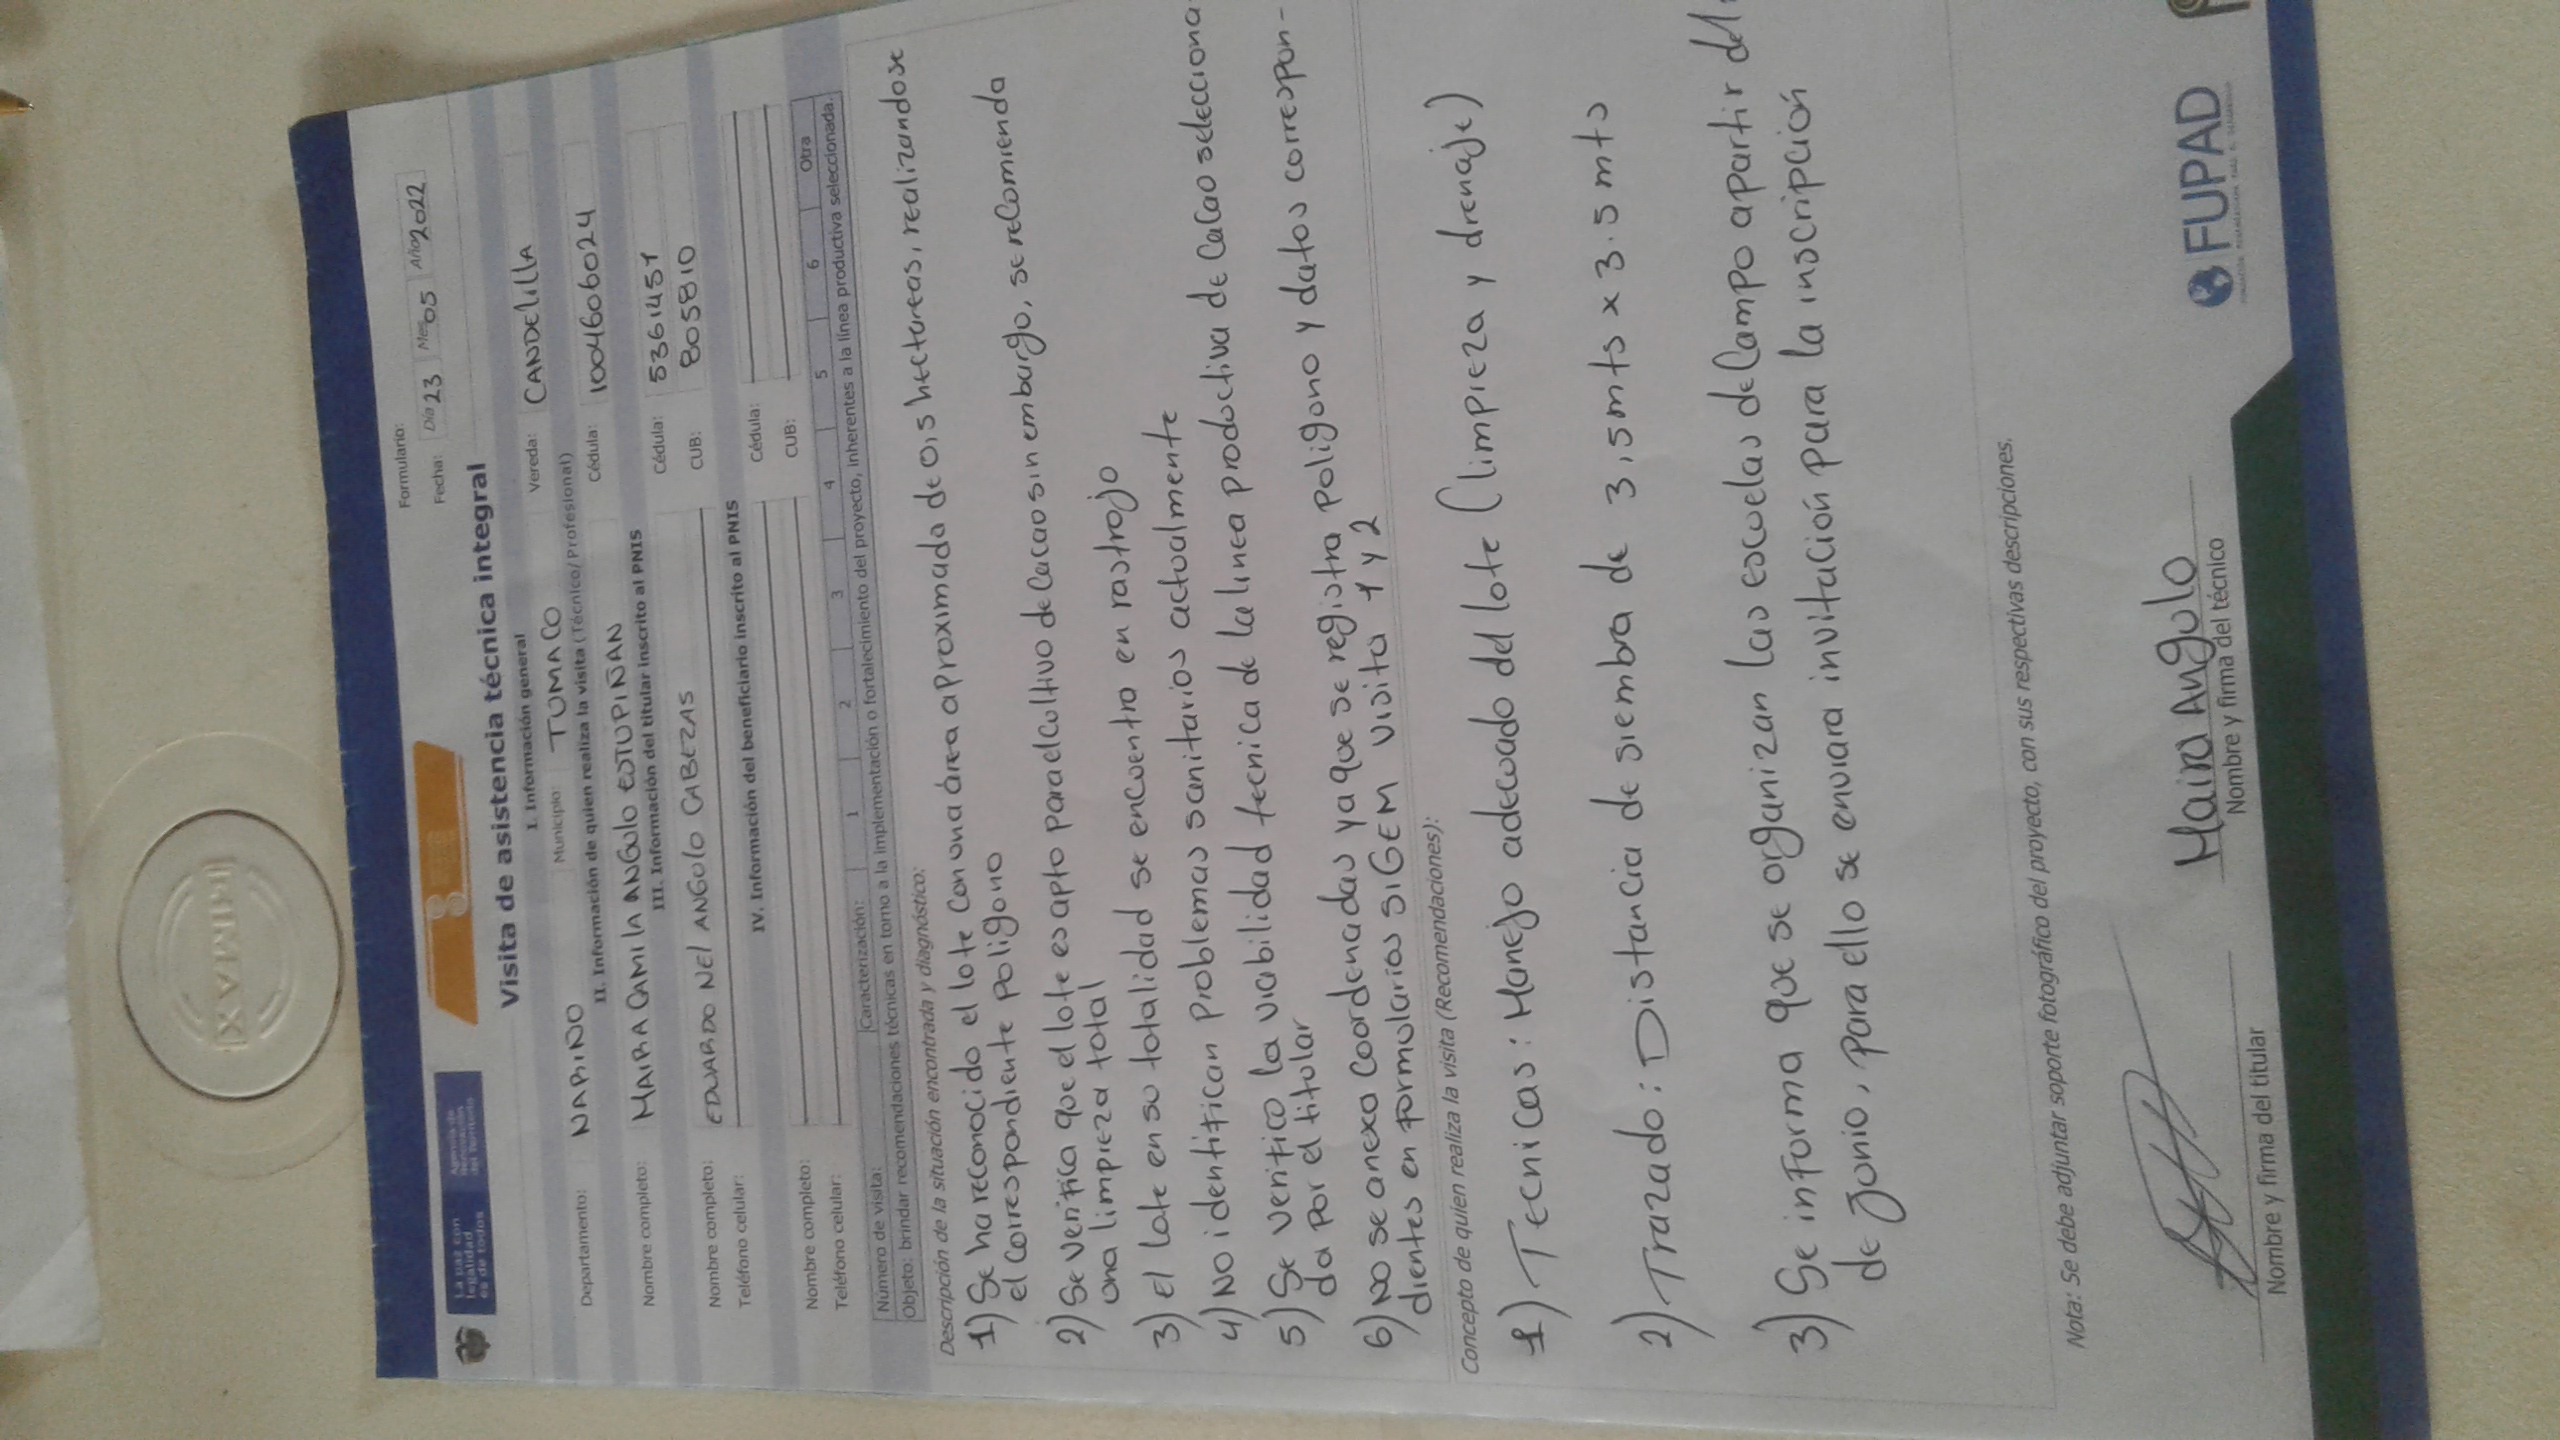 La paz con
legalidad
es de todos
Formulario:
Fecha: Día 23 Mes 05 Año 2022
Visita de asistencia técnica integral
I. Información general
Departamento: NARIÑO Municipio: TUMACO Vereda: CANDELILLA
II. Información de quien realiza la visita (Técnico/Profesional)
Nombre completo: MAIRA CAMILA ANGULO ESTUPIÑAN Cédula: 1004606024
III. Información del titular inscrito al PNIS
Nombre completo: EDUARDO NEL ANGULO CABEZAS Cédula: 5361451
Teléfono celular: CUB: 805810
IV. Información del beneficiario inscrito al PNIS
Nombre completo: Cédula:
Teléfono celular: CUB:
Número de visita: Caracterización: 1 2 3 4 5 6 Otra
Objeto: brindar recomendaciones técnicas en torno a la implementación o fortalecimiento del proyecto, inherentes a la línea productiva seleccionada.
Descripción de la situación encontrada y diagnóstico:
1) Se ha reconocido el lote con una área aproximada de 0,5 hectareas, realizandose
el correspondiente poligono
2) Se verifica que el lote es apto para el cultivo de cacao sin embargo, se recomienda
una limpieza total
3) el lote en su totalidad se encuentra en rastrojo
4) NO identifican problemas sanitarios actualmente
5) Se verifico la viabilidad tecnica de la linea productiva de cacao selecciona-
da por el titular
6) NO se anexa coordenadas ya que se registra poligono y datos correspon-
dientes en formularios SIGEM visita 1 y 2
Concepto de quien realiza la visita (Recomendaciones):
1) Tecnicas: Manejo adecuado del lote (limpieza y drenaje)
2) Trazado: Distancia de siembra de 3,5mts x 3.5 mts
3) Se informa que se organizan las escuelas de campo apartir del
de junio, para ello se enviara invitación para la inscripción
Nota: Se debe adjuntar soporte fotográfico del proyecto, con sus respectivas descripciones.
Maira Angulo
Nombre y firma del titular Nombre y firma del técnico
FUPAD
XAMIMI